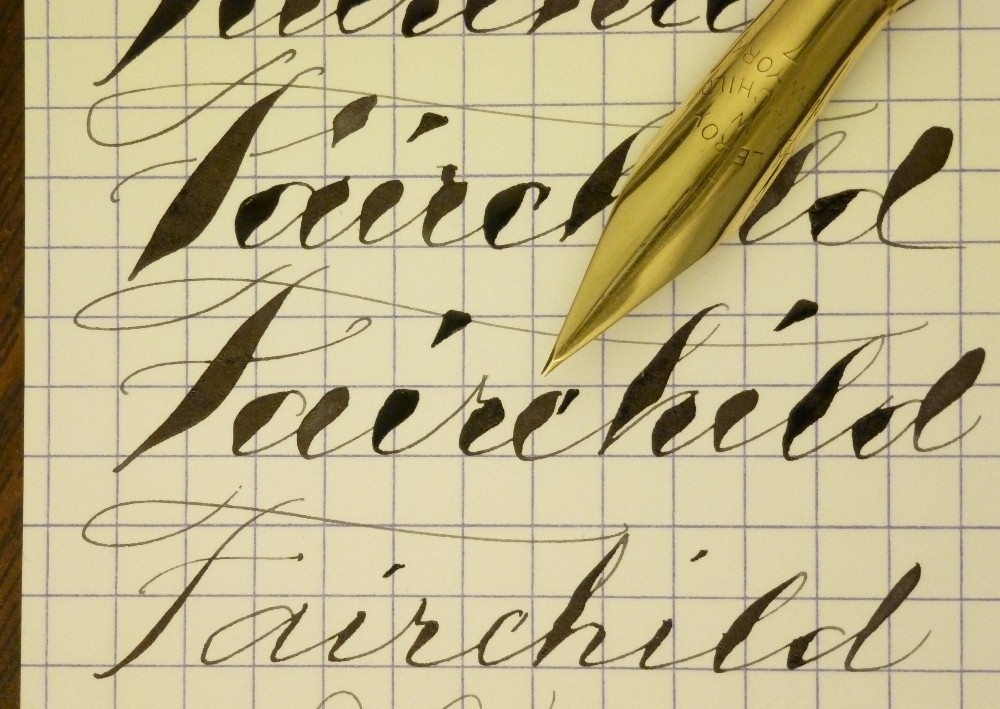 Fairchild
Fairchild
Fairchild
Fairchild
LEROY W
FAIRCHILD
NEW YORK
7